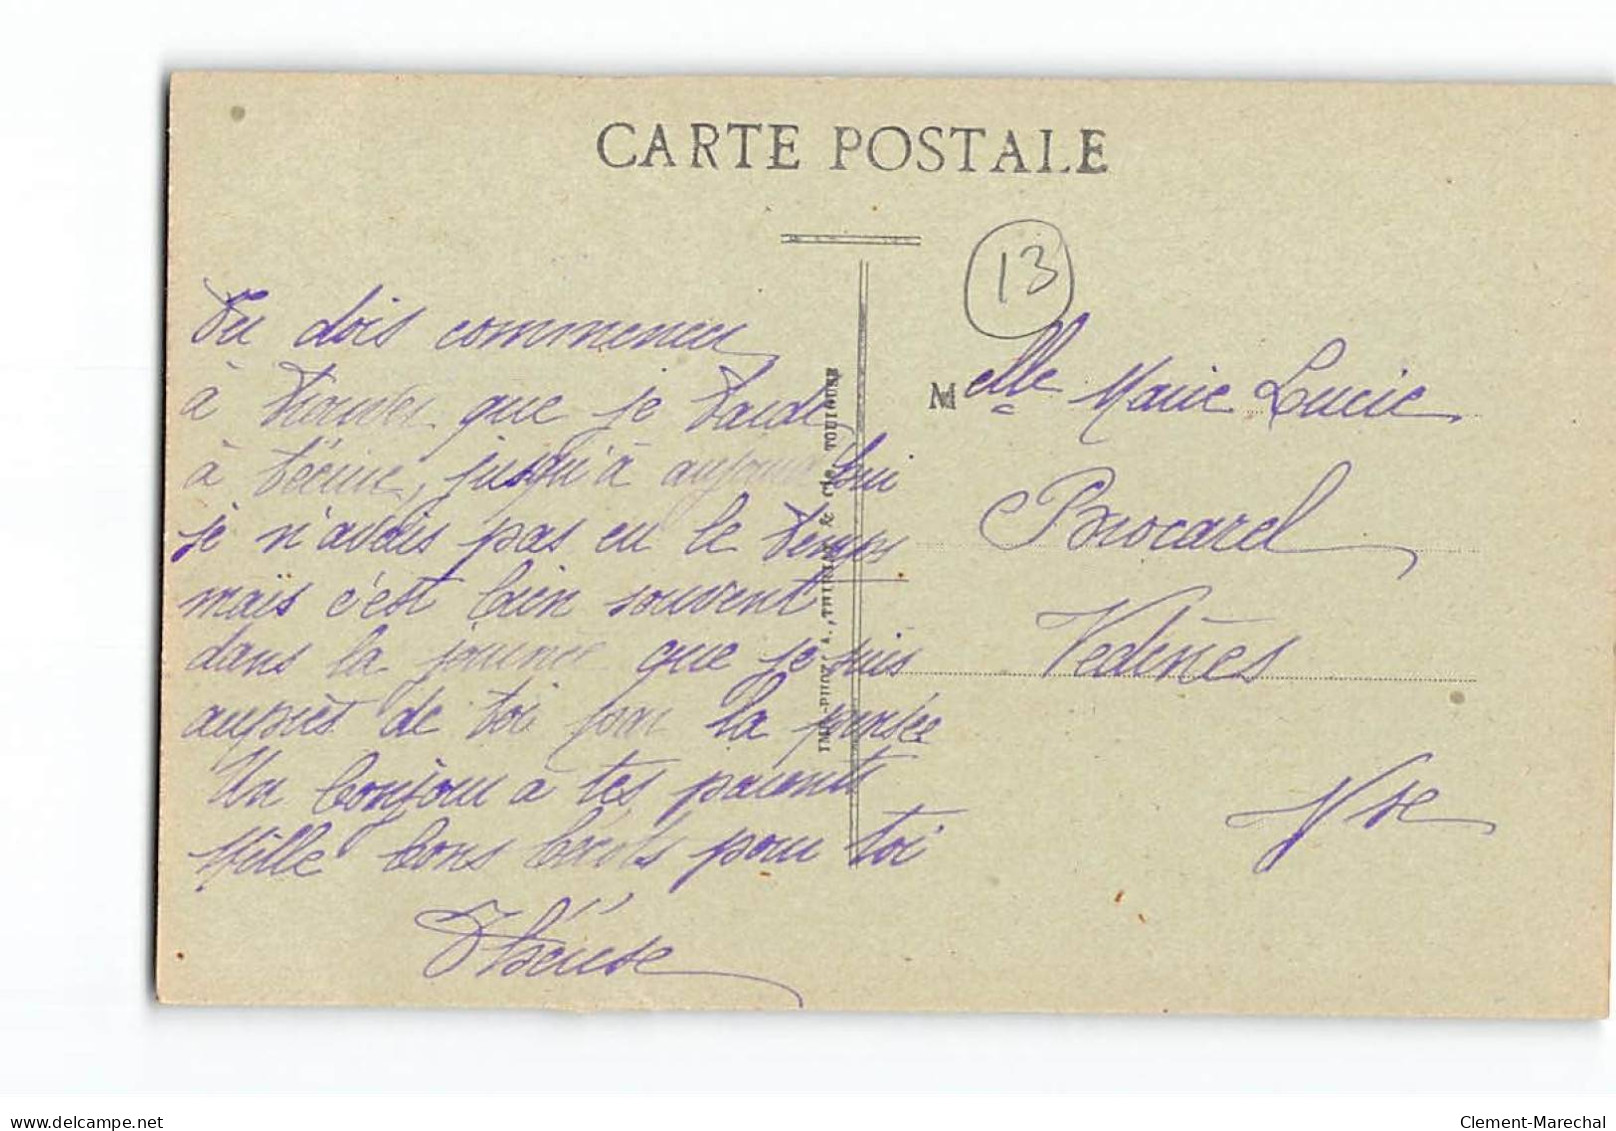 CARTE POSTALE
13
Tu dois commencer
à trouver que je tarde
à t'écrire, jusqu'à aujourd'hui
je n'avais pas eu le temps
mais c'est bien souvent
dans la journée que je suis
auprès de toi par la pensée
Un bonjour a tes parents
Mille bons bécots pour toi
Thérèse
IMP.-PHOT. A. THIRIAT & Cie, TOULOUSE
Melle Marie Lucie
Brocarel
Vedènes
Vse
www.delcampe.net
Clement-Marechal